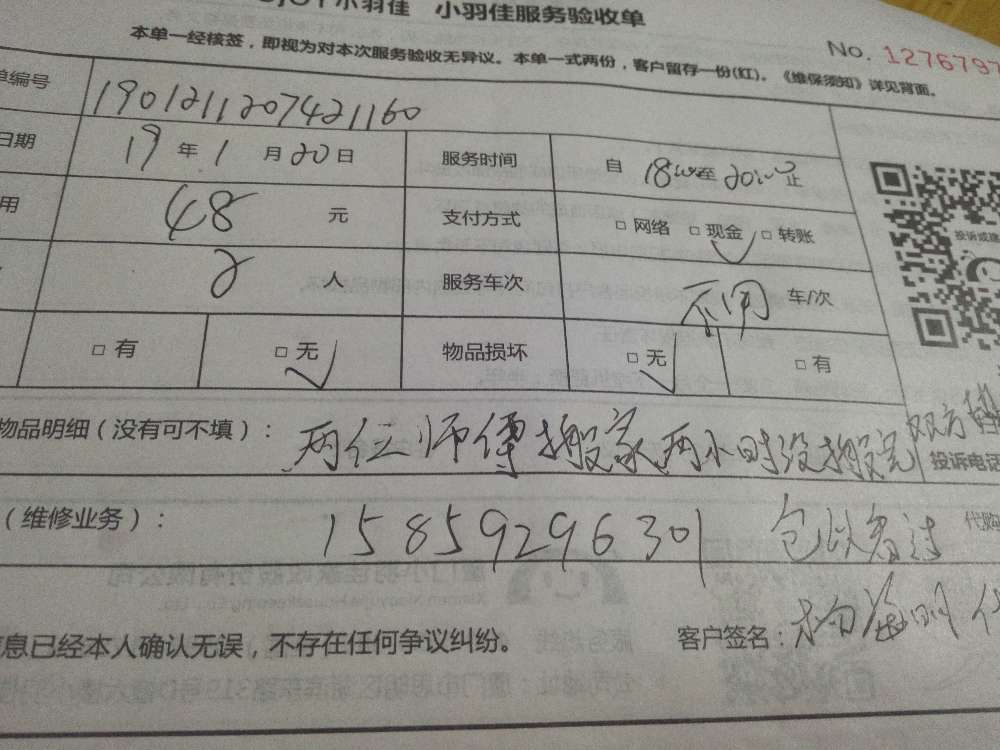 小羽佳 小羽佳服务验收单
No. 1276797
本单一经核签，即视为对本次服务验收无异议。本单一式两份，客户留存一份(红)。《维保须知》详见背面。
单编号 1901211207421160
日期 19年1月20日 服务时间 自 18 至 20 止
用 48 元 支付方式 □ 网络 □ 现金 □ 转账
2 人 服务车次 不用 车/次
□ 有 □ 无 物品损坏 □ 无 □ 有
投诉或建
物品明细（没有可不填）： 两位师傅搬家两小时没搬完 双方
投诉电话
（维修业务）： 15859296301
代购
信息已经本人确认无误，不存在任何争议纠纷。 客户签名：